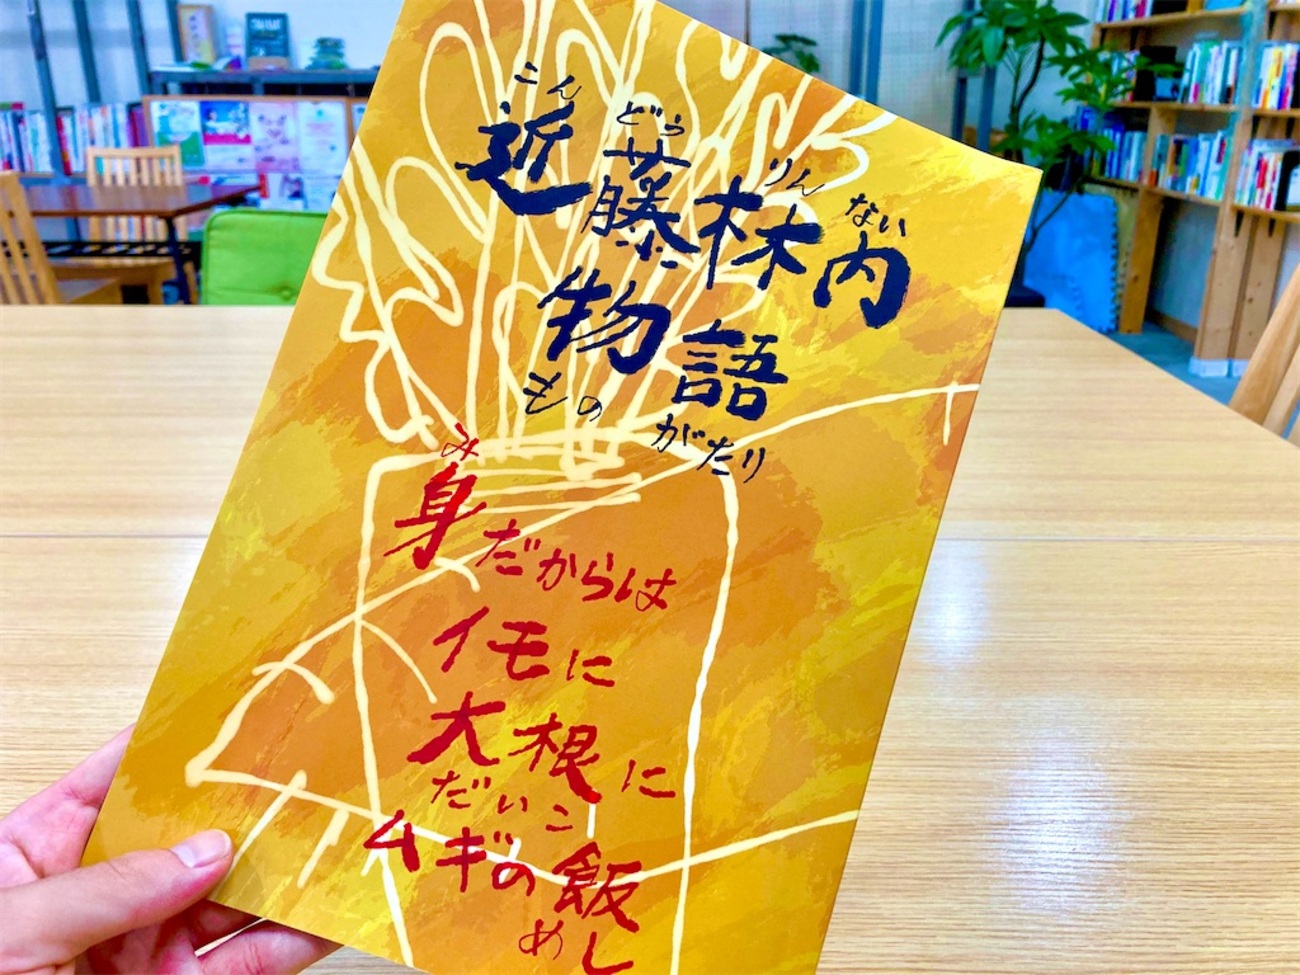 こんどうりんない
近藤林内
物語
ものがたり
み
身だからは
イモに
大根に
だいこ
ムギの飯
めし